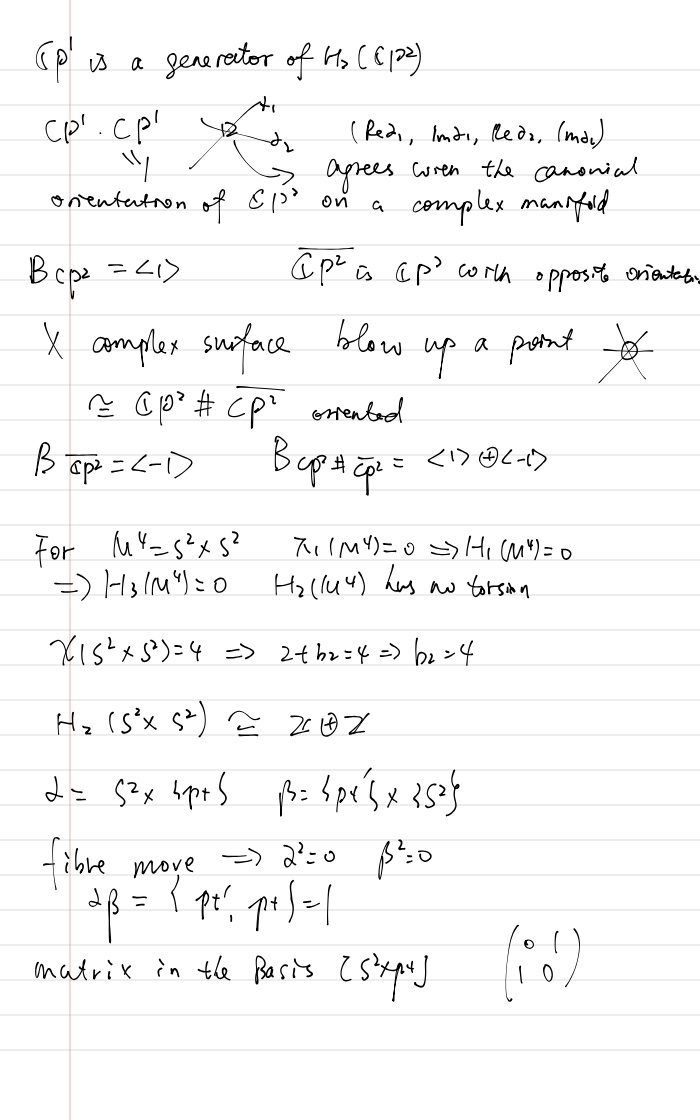 ℂP¹ is a generator of H₂(ℂP²)
CP¹ · CP¹ = 1 α₁ α₂ (Reα₁, Imα₁, Reα₂, Imα₂)
agrees with the canonical
orientation of ℂP² on a complex manifold
B_{CP²} = <1> \overline{ℂP²} is ℂP² with opposite orientation
X complex surface blow up a point
≅ ℂP² # \overline{CP²} oriented
B_{\overline{CP²}} = <-1> B_{CP² # \overline{CP²}} = <1> ⊕ <-1>
For M⁴ = S² × S² π₁(M⁴) = 0 ⇒ H₁(M⁴) = 0
⇒ H₃(M⁴) = 0 H₂(M⁴) has no torsion
χ(S² × S²) = 4 ⇒ 2 + b₂ = 4 ⇒ b₂ = 4
H₂(S² × S²) ≅ ℤ ⊕ ℤ
α = S² × {pt} β = {pt'} × {S²}
fibre move ⇒ α² = 0 β² = 0
αβ = {pt', pt} = 1
matrix in the Basis [S² × pt] (0 1
1 0)